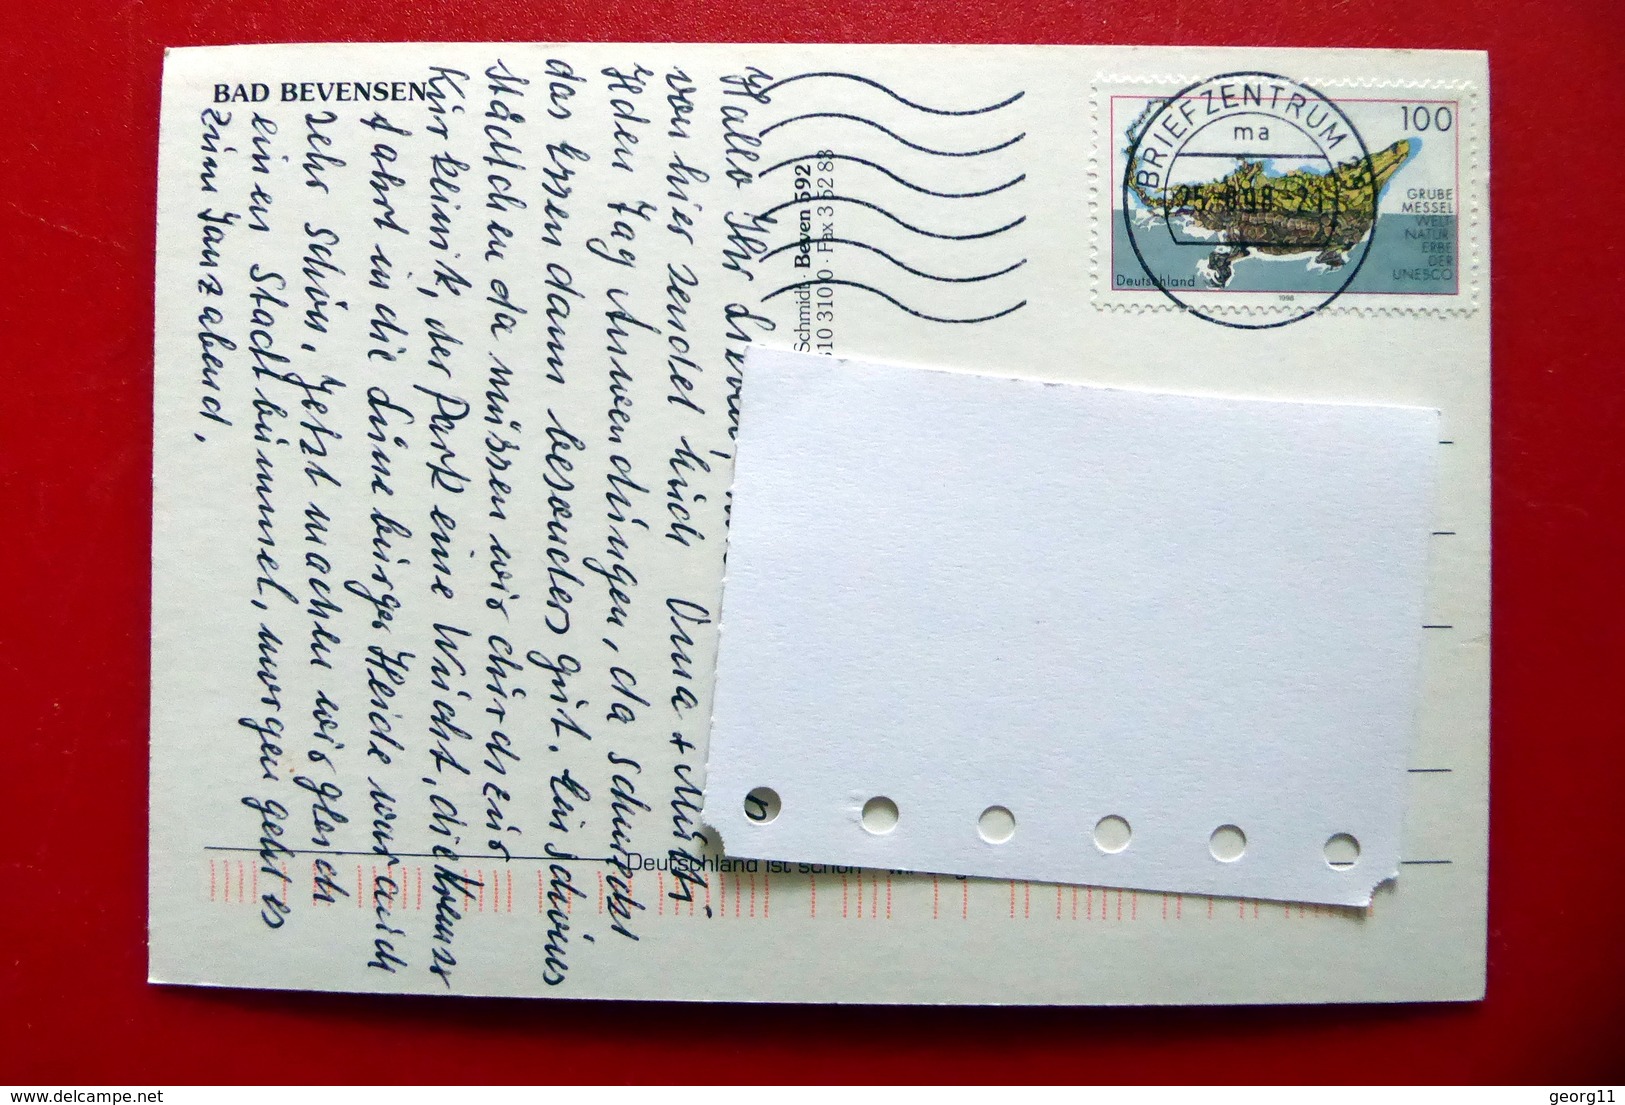 BAD BEVENSEN
Hallo Ihr Lieben,
von hier sendet Euch Oma + Mutti
Jeden Tag Anwendungen, da schmeckt
das Essen dann besonders gut. Ein schönes
Städtchen da müssen wir durch zur
Kurklinik, der Park eine Wucht, die
Fahrt in die Lüneburger Heide war auch
sehr schön. Jetzt machen wir gleich
einen Stadtbummel, morgen geht es
zum Tanzabend.
Schmidt · Beven 592
310 310 0 · Fax 3 52 83
Deutschland ist schön
BRIEFZENTRUM
ma
100
GRUBE
MESSEL
WELT-
NATUR-
ERBE
DER
UNESCO
Deutschland
1998
n
delcampe.net
georg11